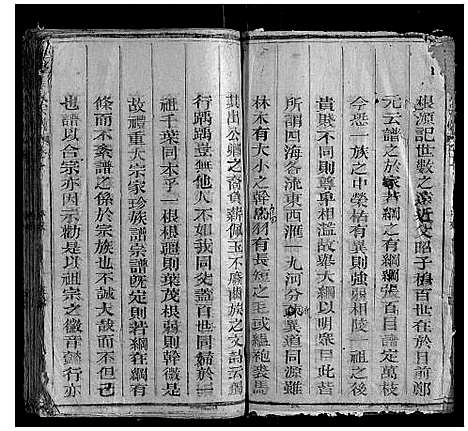 根源記世數之遠近父昭子穆百世在於目前鄭
元云譜之於家若綱之有綱綱張百目譜定萬枝
今恐一族之中榮枯有異則強弱相陵一祖之後
貴賤不同則尊卑相濫故舉大綱以明衆目此皆
所謂四海各流東西滙一九河分異道同源雖
林木有大小之幹羽有長短之毛或緼袍裘馬
其出公卿之裔負薪佩玉不廢齒族之文詩云獨
行踽踽豈無他人不如我同父譜百世同歸於一
祖千葉同本乎一根根疆則葉茂根弱則幹微是
故禮重大宗家珍族譜譜旣定則若綱在綱有
條而不紊譜之係於宗族也不誠大哉而不但此
也譜以合宗亦因示勸是以祖宗之徽音懿行亦